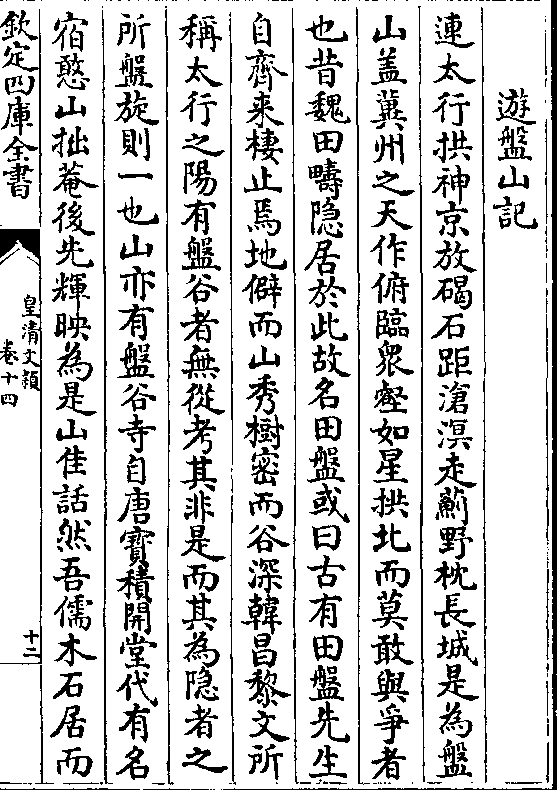 遊盤山記
連太行拱神京放碣石距滄溟走薊野枕長城是為盤
山蓋冀州之天作俯臨衆壑如星拱北而莫敢與爭者
也昔魏田疇隐居於此故名田盤或曰古有田盤先生
自齊来棲止焉地僻而山秀樹密而谷深韓昌黎文所
稱太行之陽有盤谷者無從考其非是而其為隐者之
所盤旋則一也山亦有盤谷寺自唐寳積開堂代有名
宿憨山拙菴後先輝映為是山佳話然吾儒木石居而
欽定四庫全書
皇清文頴
卷十四
十二